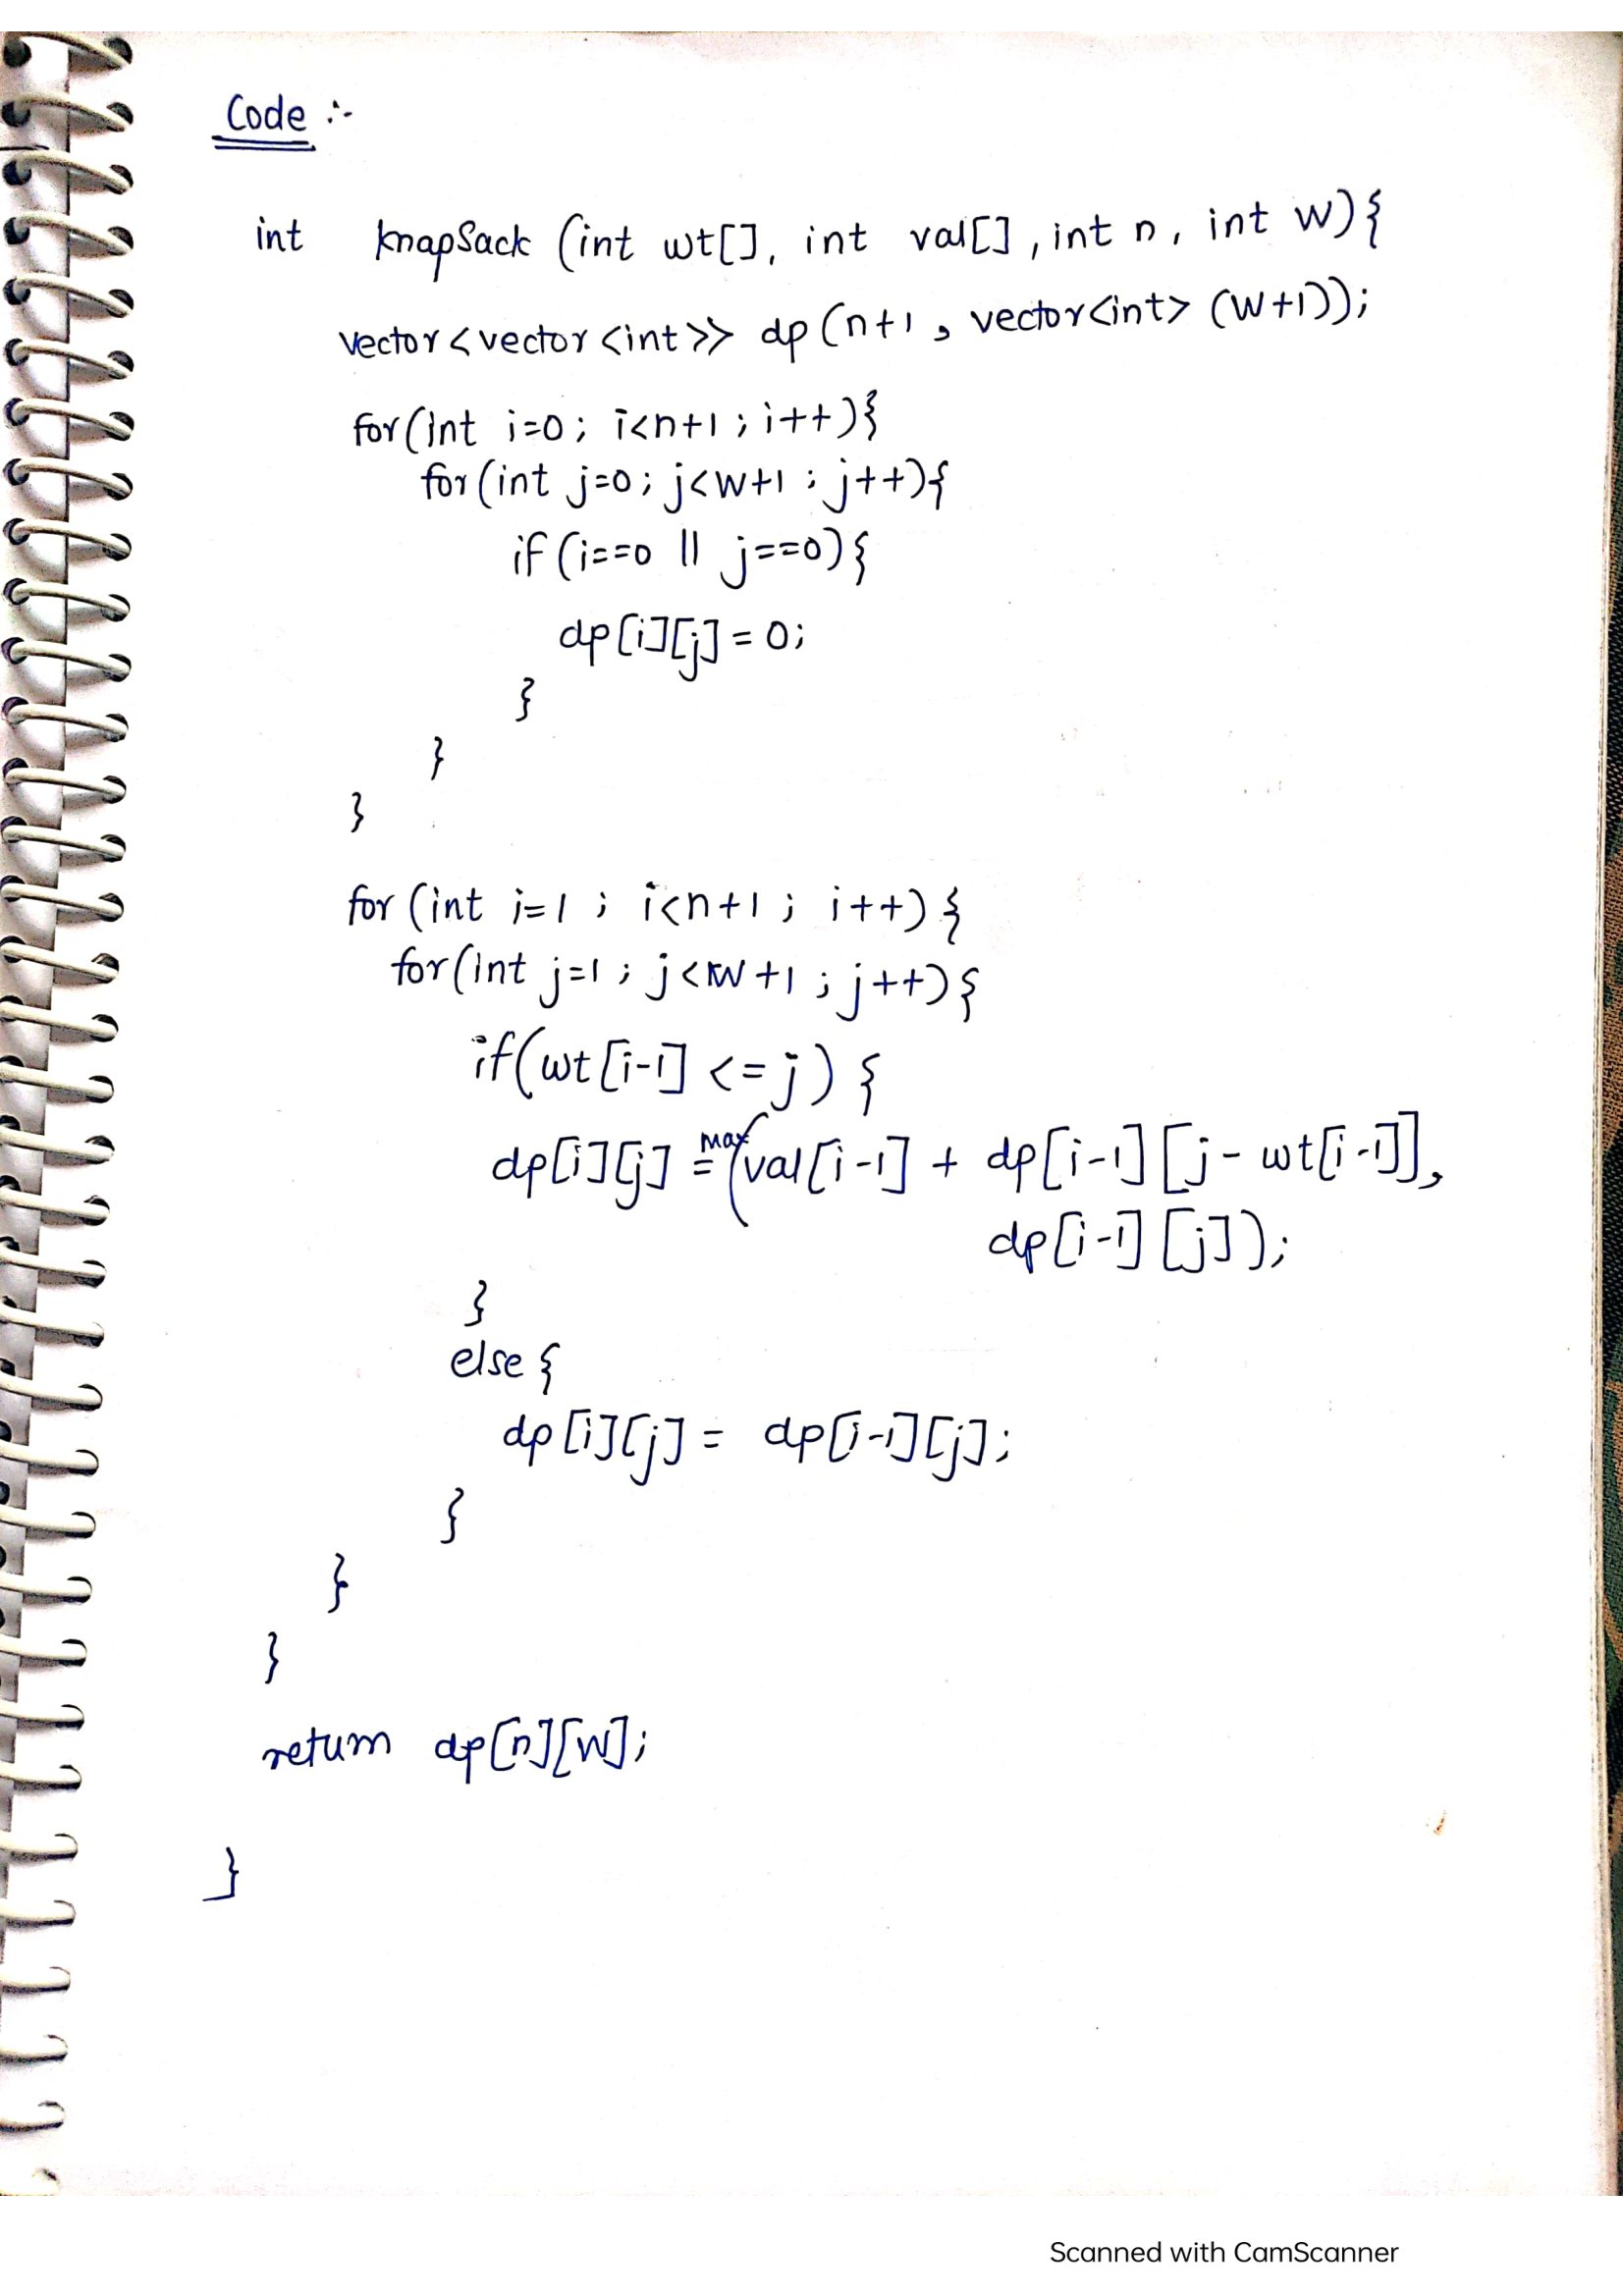 Code :-
int knapSack (int wt[], int val[], int n, int W){
vector<vector<int>> dp(n+1, vector<int> (W+1));
for(int i=0; i<n+1; i++){
for(int j=0; j<W+1; j++){
if(i==0 || j==0){
dp[i][j] = 0;
}
}
}
for(int i=1; i<n+1; i++){
for(int j=1; j<W+1; j++){
if(wt[i-1] <= j){
dp[i][j] = max(val[i-1] + dp[i-1][j- wt[i-1]],
dp[i-1][j]);
}
else{
dp[i][j] = dp[i-1][j];
}
}
}
return dp[n][W];
}
Scanned with CamScanner